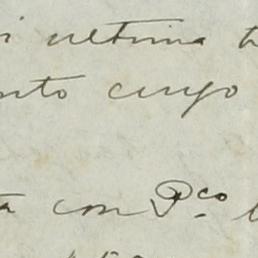 i ultima
nto cuyo
con P.co